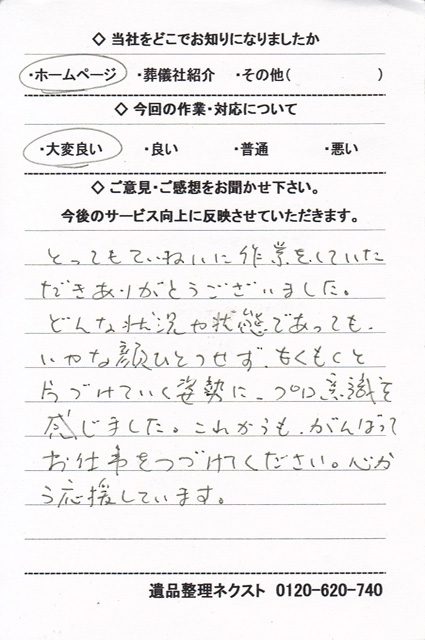 ◇ 当社をどこでお知りになりましたか
・ホームページ ・葬儀社紹介 ・その他( )
◇ 今回の作業・対応について
・大変良い ・良い ・普通 ・悪い
◇ ご意見・ご感想をお聞かせ下さい。
今後のサービス向上に反映させていただきます。
とってもていねいに作業をしていた
だきありがとうございました。
どんな状況や状態であっても、
いやな顔ひとつせず、もくもくと
片づけていく姿勢に、プロ意識を
感じました。これからも、がんばって
お仕事をつづけてください。心か
ら応援しています。
遺品整理ネクスト 0120-620-740